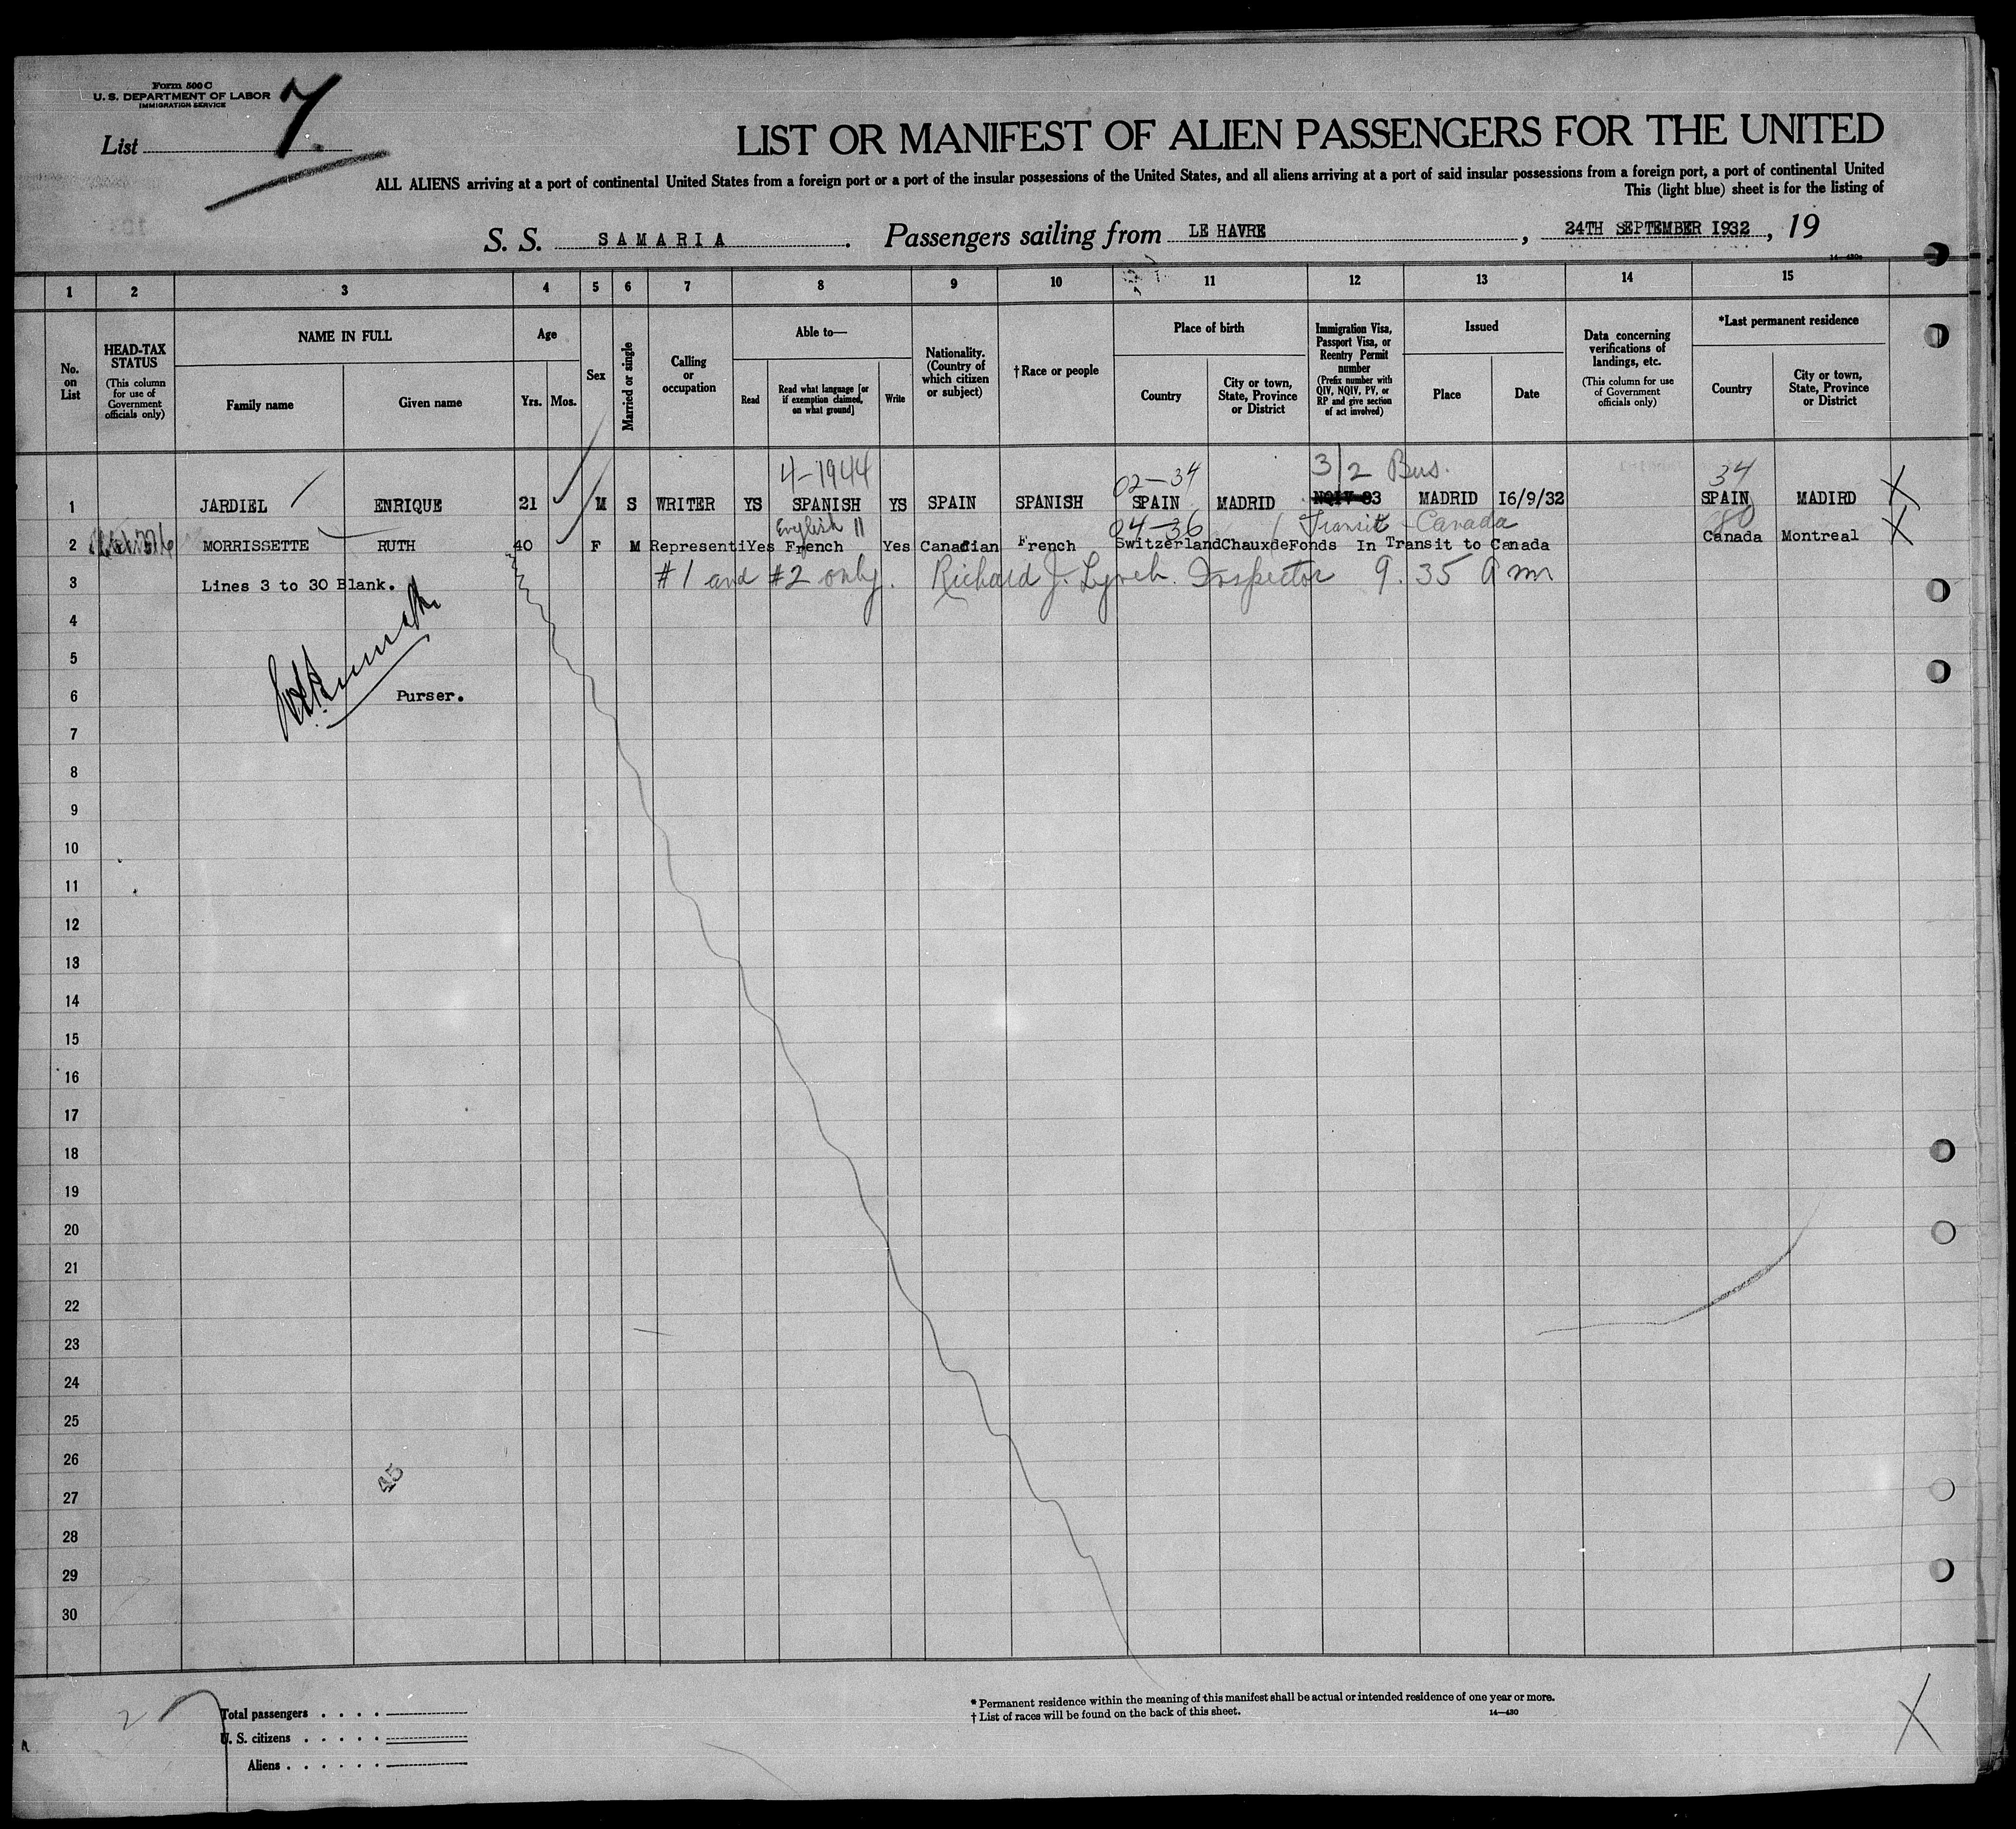 Form 500 C
U. S. DEPARTMENT OF LABOR
IMMIGRATION SERVICE
List 7.
LIST OR MANIFEST OF ALIEN PASSENGERS FOR THE UNITED
ALL ALIENS arriving at a port of continental United States from a foreign port or a port of the insular possessions of the United States, and all aliens arriving at a port of said insular possessions from a foreign port, a port of continental United
This (light blue) sheet is for the listing of
S. S. SAMARIA. Passengers sailing from LE HAVRE, 24TH SEPTEMBER 1932, 19
14—430a
1 2 3 4 5 6 7 8 9 10 11 12 13 14 15
No. on List
HEAD-TAX STATUS (This column for use of Government officials only)
NAME IN FULL
Family name Given name
Age
Yrs. Mos.
Sex
Married or single
Calling or occupation
Able to—
Read Read what language [or if exemption claimed, on what ground] Write
Nationality. (Country of which citizen or subject)
†Race or people
Place of birth
Country City or town, State, Province or District
Immigration Visa, Passport Visa, or Reentry Permit number (Prefix number with QIV, NQIV, PV, or RP and give section of act involved)
Issued
Place Date
Data concerning verifications of landings, etc. (This column for use of Government officials only)
*Last permanent residence
Country City or town, State, Province or District
4-1944 02-34 3/2 Bus. 34
1 JARDIEL ENRIQUE 21 M S WRITER YS SPANISH YS SPAIN SPANISH SPAIN MADRID NQIV-83 MADRID 16/9/32 SPAIN MADIRD X
English 11 04-36 Transit - Canada 80
2 MORRISSETTE RUTH 40 F M RepresentiYes French Yes Canadian French SwitzerlandChauxdeFonds In Transit to Canada Canada Montreal X
3 Lines 3 to 30 Blank. #1 and #2 only. Richard J. Lynch. Inspector 9.35 am
4
5
6 Purser.
7
8
9
10
11
12
13
14
15
16
17
18
19
20
21
22
23
24
25
26
45
27
28
29
30
2
Total passengers . . . .
U. S. citizens . . . . .
Aliens . . . . . .
* Permanent residence within the meaning of this manifest shall be actual or intended residence of one year or more.
† List of races will be found on the back of this sheet. 14—430
X